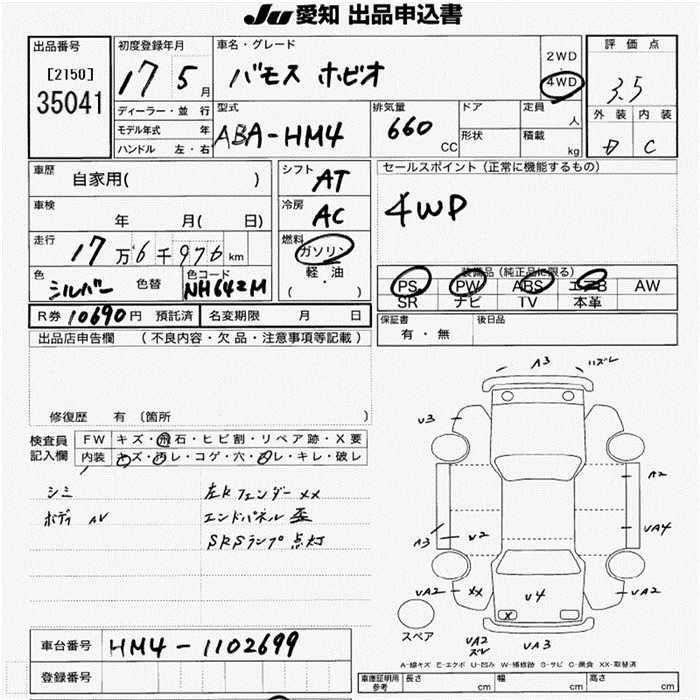 JU愛知 出品申込書
出品番号
[2150]
35041
初度登録年月
17 5月
車名・グレード
バモス ホビオ
2WD
・
4WD
評価点
3.5
外装 内装
D C
ディーラー・並行
モデル年式 年
ハンドル 左・右
型式
ABA-HM4
排気量
660
CC
ドア
形状
定員
人
積載
kg
車歴
自家用( )
シフト
AT
セールスポイント(正常に機能するもの)
4WD
車検
年 月( 日)
冷房
AC
走行
17万6千976km
燃料
ガソリン
軽・油
( ・ )
色
シルバー
色替
色コード
NH642M
装備品(純正品に限る)
PS PW ABS エアB AW
SR ナビ TV 本革
R券 10690円 預託済
名変期限 月 日
保証書
有・無
後日品
出品店申告欄 (不良内容・欠品・注意事項等記載)
修復歴 有〔箇所 〕
検査員
記入欄
FW キズ・飛石・ヒビ割・リペア跡・X要
内装 キズ・汚レ・コゲ・穴・スレ・キレ・破レ
シミ
ボディ AV
左Rフェンダー XX
エンドパネル 歪
SRSランプ 点灯
A3 ハズレ
U3
A2
A3
U2
UA4
UA2
XX
U4
UA2
X
UA2
ズレ
UA3
スペア
A-線キズ E-エクボ U-凹み W-補修跡 S-サビ C-腐食 XX-取替済
車台番号
HM4-1102699
登録番号
車庫証明用
参考
長さ cm
幅 cm
高さ cm